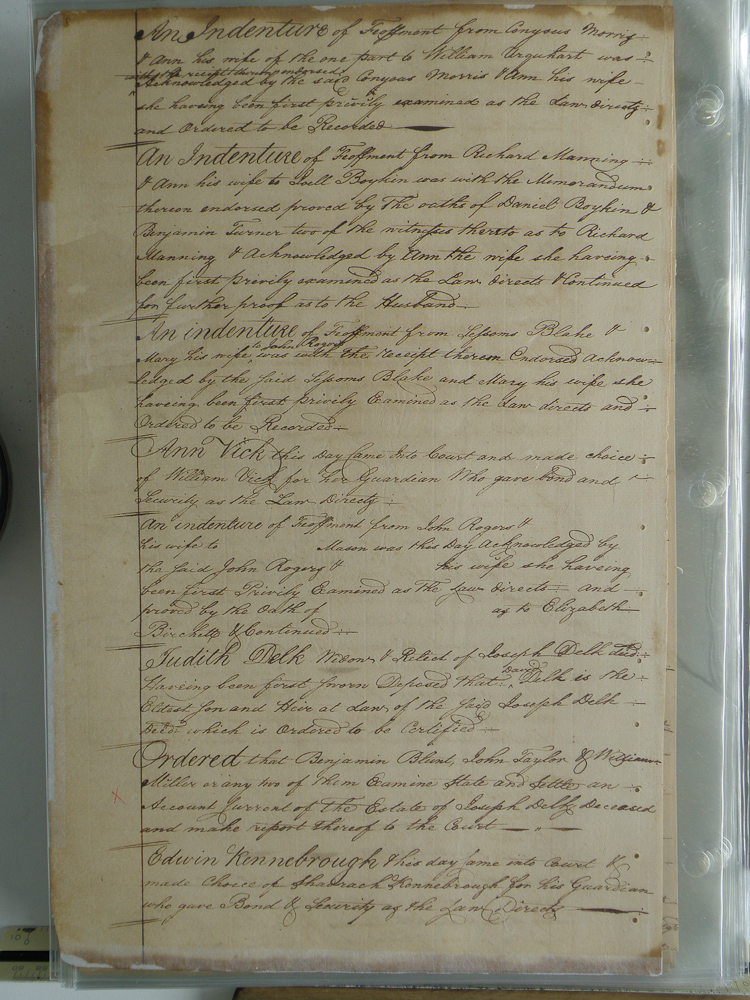 An Indenture of Feoffment from Conyous Morris
& Ann his wife of the one part to William Urquhart was
with the receipt thereon endorsed
Acknowledged by the said Conyous Morris & Ann his wife
she having been first privily examined as the Law directs
and Ordered to be Recorded
An Indenture of Feoffment from Richard Manning
& Ann his wife to Joell Boykin was with the Memorandum
thereon endorsed proved by The oaths of Daniel Boykin &
Benjamin Turner two of the witnesses thereto as to Richard
Manning & Acknowledged by Ann the wife she haveing
been first privily examined as the Law directs & Continued
for further proof as to the Husband
An indenture of Feoffment from Sessoms Blake &
to John Rogers
Mary his wife was with the receipt thereon Endorsed Acknow=
ledged by the said Sessoms Blake and Mary his wife she
haveing been first privily Examined as the Law directs and
Ordered to be Recorded
Ann Vick this Day Came Into Court and made choice
of William Vick for her Guardian Who gave bond and
Security as the Law Directs
An indenture of Feoffment from John Rogers &
his wife to Mason was this Day Acknowledged by
the said John Rogers & his wife she haveing
been first Privily Examined as The Law directs and
proved by the Oath of as to Elizabeth
Birchett & Continued
Judith Delk Widow & Relict of Joseph Delk decd
David
Having been first sworn Deposed that Delk is the
Eldest son and Heir at Law of the said Joseph Delk
Decd which is Ordered to be Certified
Ordered that Benjamin Blunt, John Taylor & William
Miller or any two of them Examine State and Settle an
Account Current of the Estate of Joseph Delk Deceased
and make report thereof to the Court
Edwin Kennebrough this day came into Court &
made Choice of Shadrach Kennebrough for his Guardian
who gave Bond & Security as the Law Directs